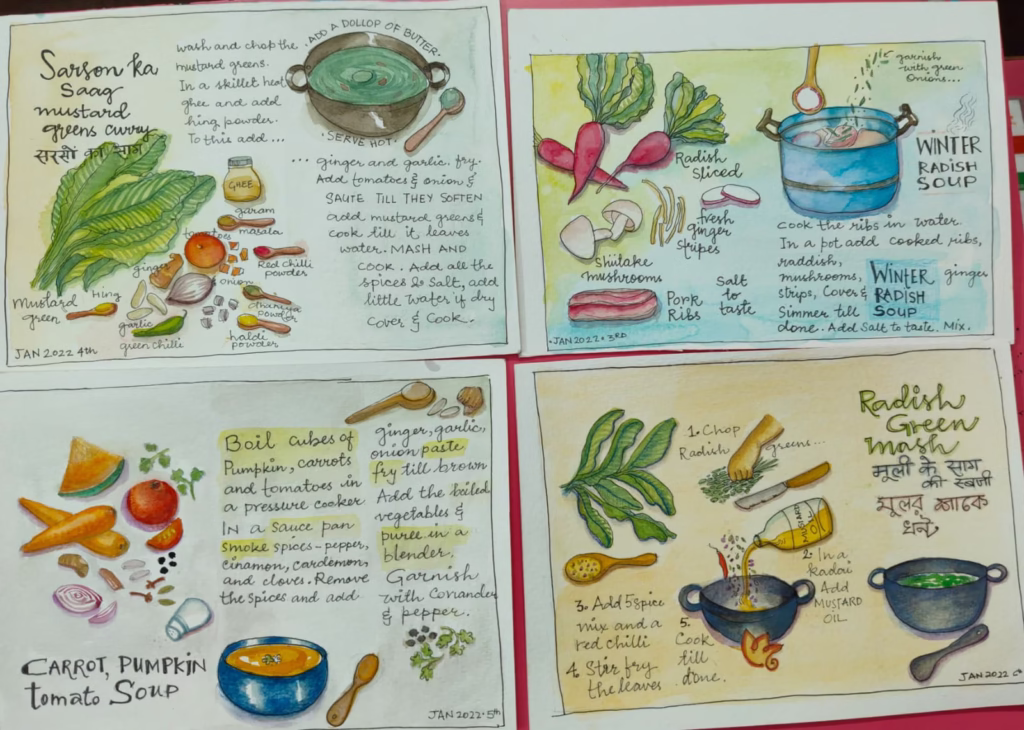 Sarson ka
Saag
mustard
greens curry
सरसों का साग
wash and chop the
mustard greens.
In a skillet heat
ghee and add
hing powder.
To this add ...
ADD A DOLLOP OF BUTTER
SERVE HOT
... ginger and garlic. fry.
Add tomatoes & onion &
SAUTE TILL THEY SOFTEN
add mustard greens &
cook till it leaves
water. MASH AND
COOK. Add all the
spices & salt, add
little water if dry
Cover & Cook.
GHEE
garam
masala
tomatoes
ginger
Red chilli
powder
onion
Mustard
green
Hing
dhaniya
powder
garlic
green chilli
haldi
powder
JAN 2022 4th
garnish
with green
onions...
WINTER
RADISH
SOUP
Radish
Sliced
fresh
ginger
stripes
Shiitake
mushrooms
Pork
Ribs
Salt
to
taste
cook the ribs in water.
In a pot add cooked ribs,
raddish,
mushrooms, ginger
strips, Cover &
Simmer till
done. Add Salt to taste. Mix.
WINTER
RADISH
SOUP
JAN 2022 · 3RD
Boil cubes of
Pumpkin, carrots
and tomatoes in
a pressure cooker
In a sauce pan
smoke spices - pepper,
cinamon, cardemon,
and cloves. Remove
the spices and add
ginger, garlic,
onion paste
fry till brown
Add the boiled
vegetables &
puree in a
blender.
Garnish
with Coriander
& pepper.
CARROT, PUMPKIN
tomato Soup
JAN 2022 · 5th
Radish
Green
Mash
मूली के साग
की सबजी
1. Chop
Radish greens...
MUSTARD
OIL
2. In a
kadai
Add
MUSTARD
OIL
3. Add 5 spice
mix and a
red chilli
4. Stir fry
the leaves
5.
Cook
till
done.
JAN 2022